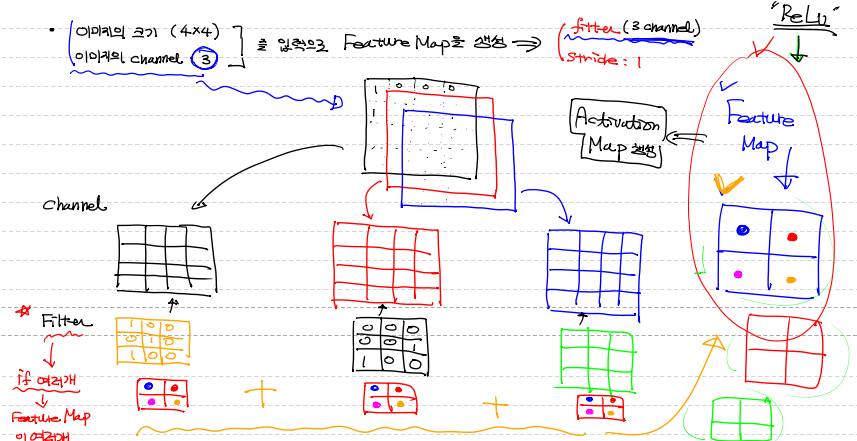 "ReLu"
• 이미지의 크기 (4×4)
이미지의 channel ③
을 입력으로 Feature Map을 생성 ⇒
filter (3 channel)
stride : 1
1 0 0 0
1
Activation
Map 생성
Feature
Map
channel
Filter
1 0 0
0 1 0
1 0 0
0 0 0
0 0 1
1 0 0
if 여러개
Feature Map
이 여러개
+ +